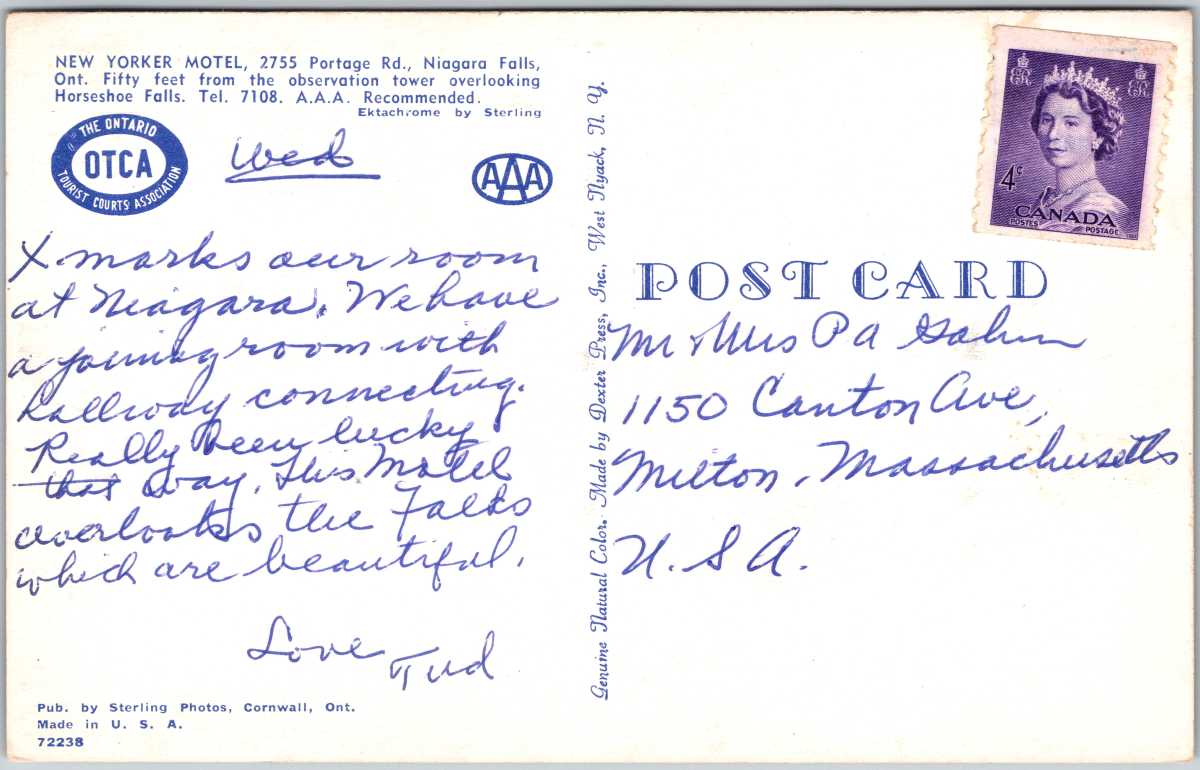 NEW YORKER MOTEL, 2755 Portage Rd., Niagara Falls,
Ont. Fifty feet from the observation tower overlooking
Horseshoe Falls. Tel. 7108. A.A.A. Recommended.
Ektachrome by Sterling
THE ONTARIO
OTCA
TOURIST COURTS ASSOCIATION
Wed
AAA
X marks our room
at Niagara. We have
a joining room with
hallway connecting.
Really been lucky
that way. This Motel
overlooks the Falls
which are beautiful.
Love
Tud
Pub. by Sterling Photos, Cornwall, Ont.
Made in U. S. A.
72238
Genuine Natural Color. Made by Dexter Press, Inc., West Nyack, N. Y.
EIIR
EIIR
4¢
CANADA
POSTES POSTAGE
POST CARD
Mr & Mrs P a
1150 Canton Ave,
Milton, Massachusetts
U. S. A.